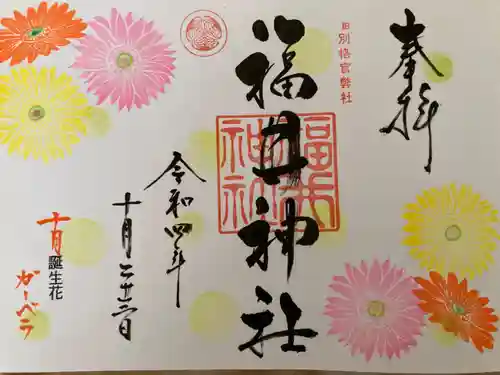 奉拝
旧別格官幣社
福井神社
福井神社
令和四年
十月二十三日
十月誕生花
ガーベラ